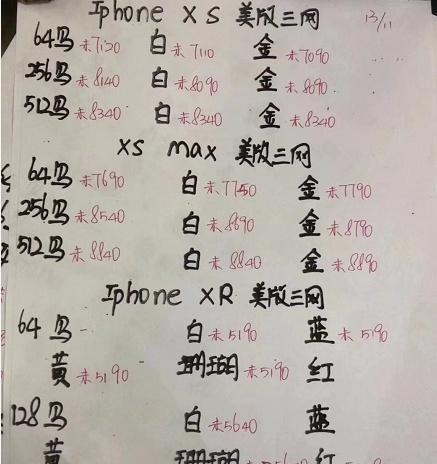 Iphone XS 美版三网 13/11
64马 未7120 白 未7110 金 未7090
256马 未8140 白 未8090 金 未8090
512马 未8340 白 未8340 金 未8340
XS max 美版三网
64马 未7690 白 未7750 金 未7790
256马 未8540 白 未8690 金 未8790
512马 未8840 白 未8840 金 未8890
Iphone XR 美版三网
64马 - 白 未5190 蓝 未5190
黄 未5190 珊瑚 未5190 红
128马 白 未5640 蓝
黄 珊瑚 红